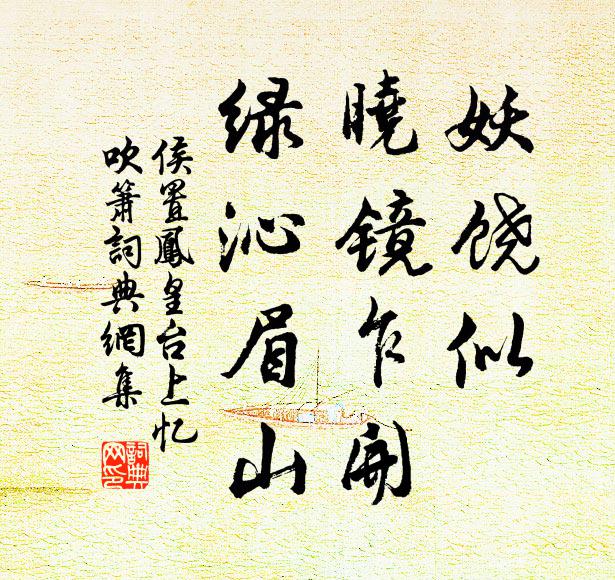 妖饶似
曉镜乍開
绿沁眉山
侯置鳳皇台上忆
吹簫詞典網集
詞典
网印